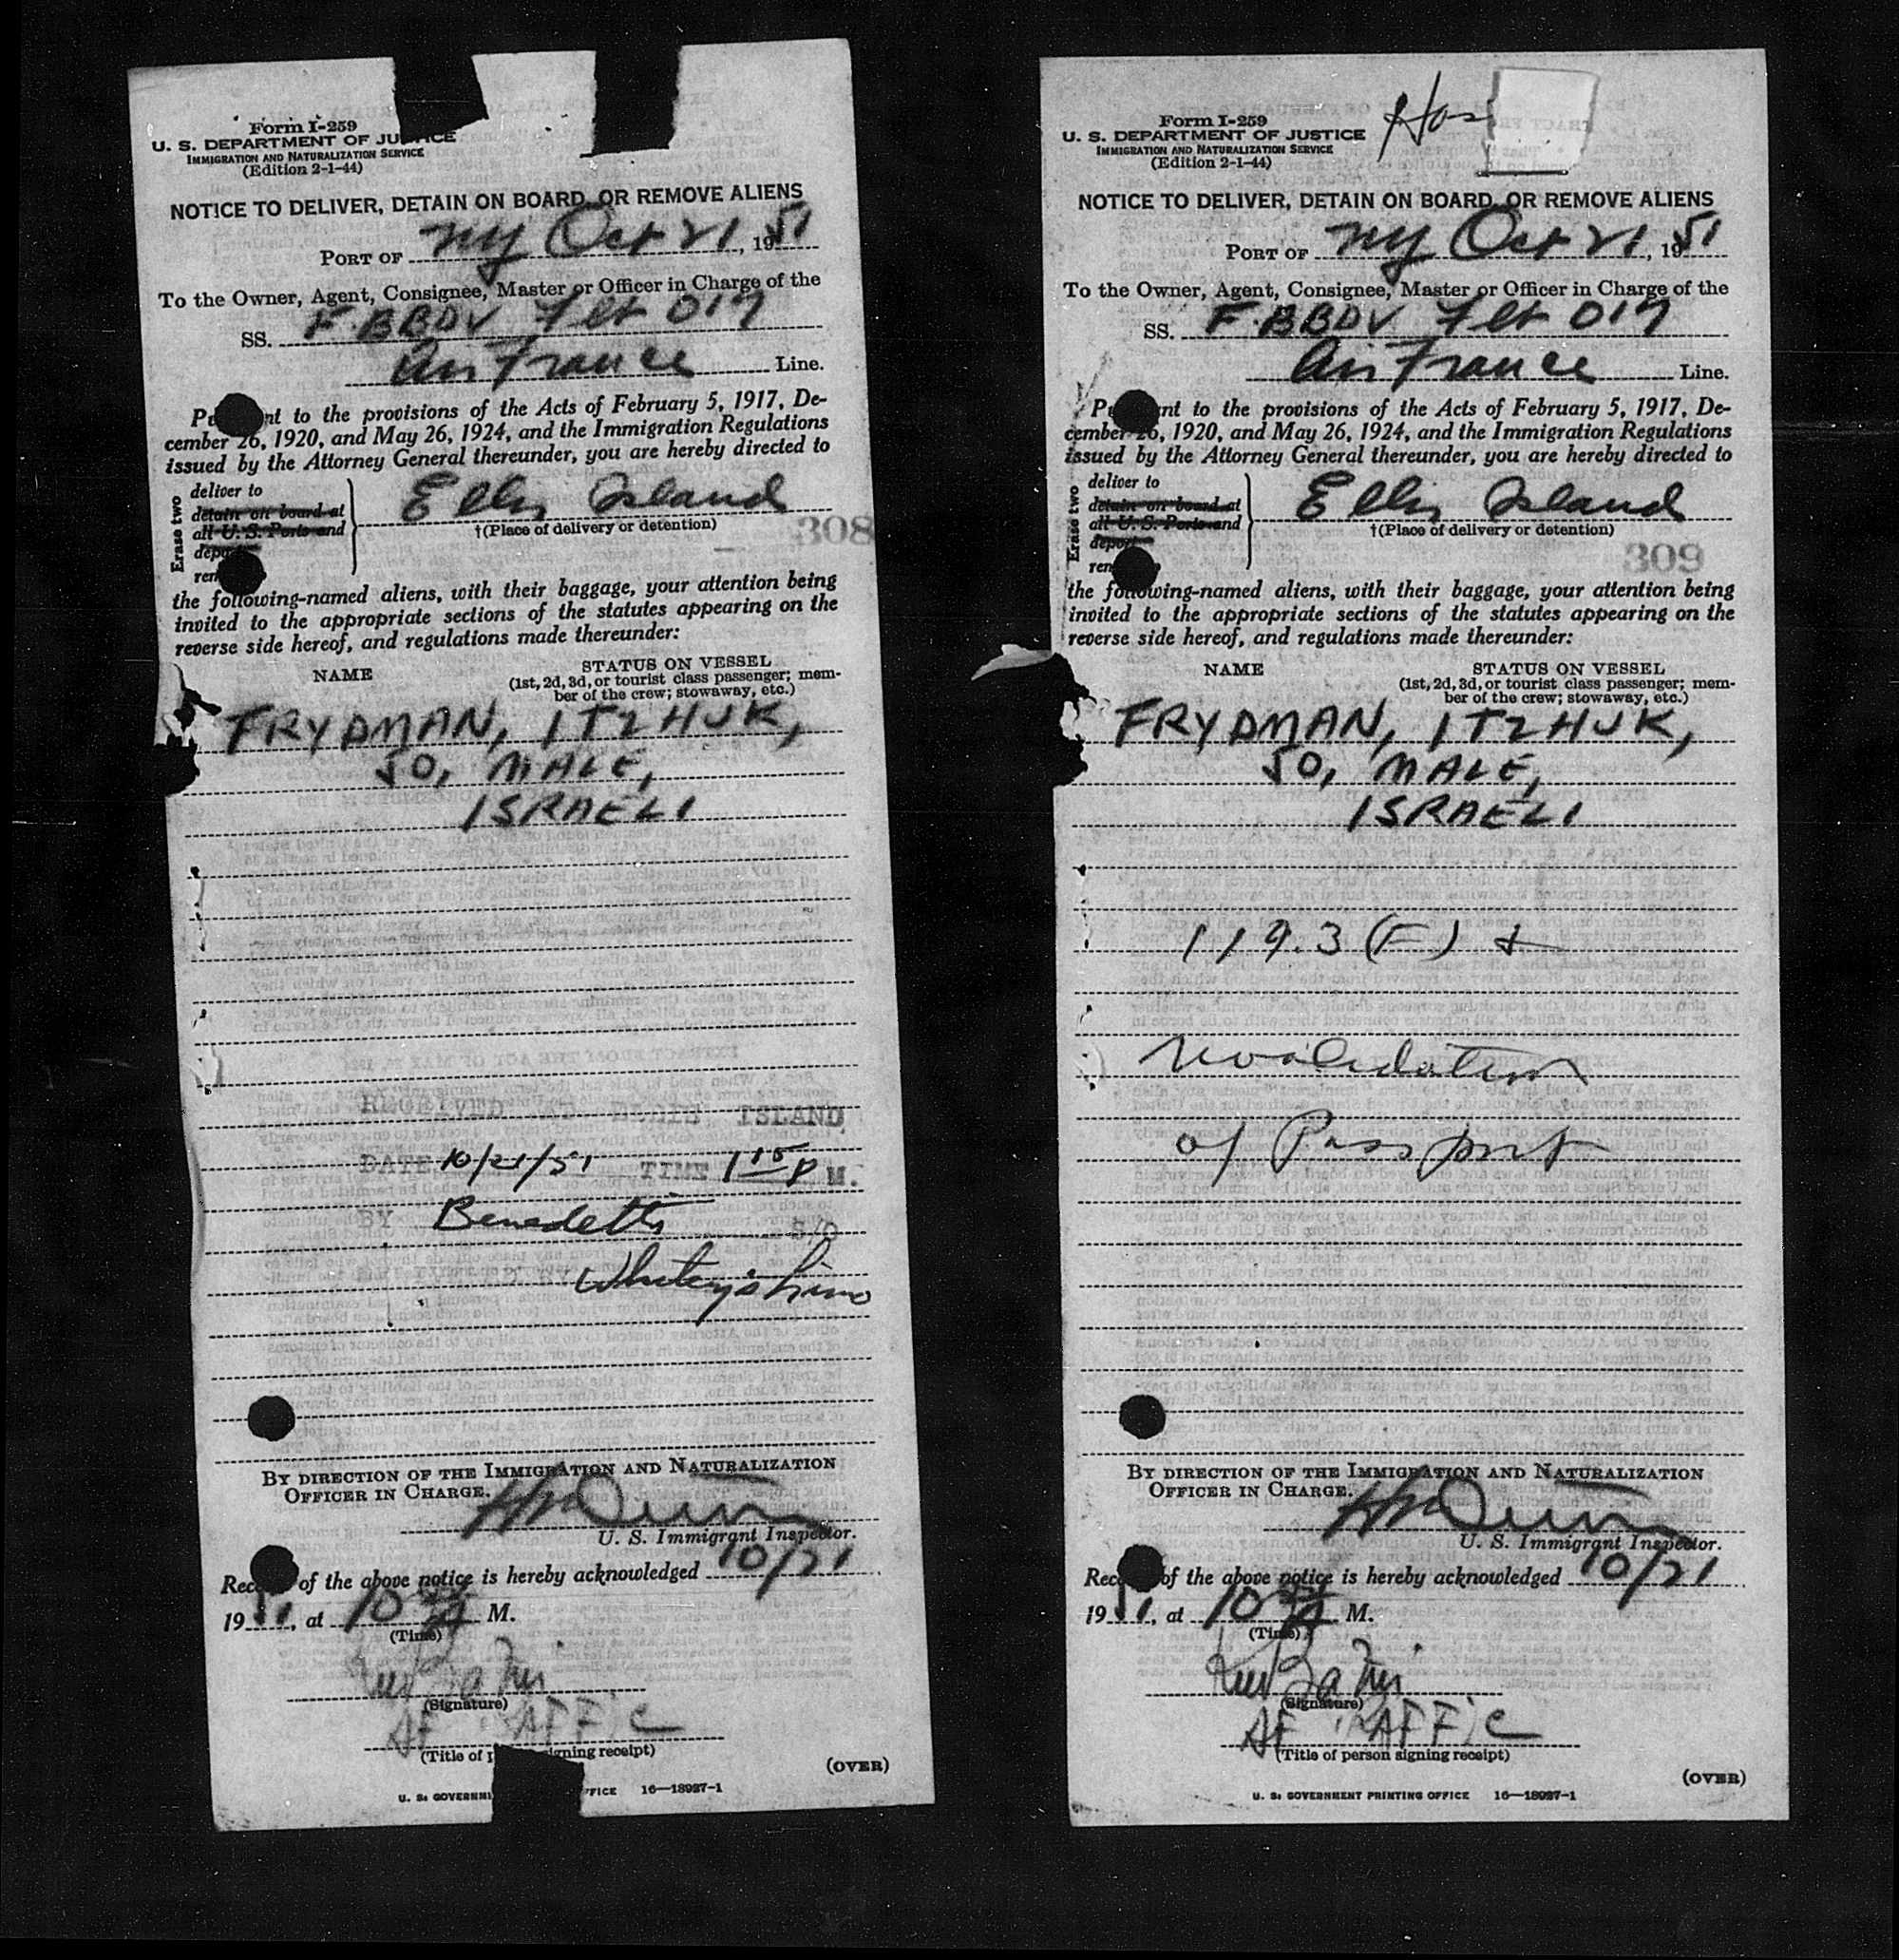 Form I-259
U. S. DEPARTMENT OF JUSTICE
IMMIGRATION AND NATURALIZATION SERVICE
(Edition 2-1-44)
NOTICE TO DELIVER, DETAIN ON BOARD, OR REMOVE ALIENS
PORT OF NY Oct 21, 1951
To the Owner, Agent, Consignee, Master or Officer in Charge of the
SS. F.BBDV Flt 017
Air France Line.
Pu nt to the provisions of the Acts of February 5, 1917, De-
cember 26, 1920, and May 26, 1924, and the Immigration Regulations
issued by the Attorney General thereunder, you are hereby directed to
Erase two
deliver to
detain on board at
all U. S. Ports and
deport
rem
Ellis Island
†(Place of delivery or detention)
308
the following-named aliens, with their baggage, your attention being
invited to the appropriate sections of the statutes appearing on the
reverse side hereof, and regulations made thereunder:
NAME
STATUS ON VESSEL
(1st, 2d, 3d, or tourist class passenger; mem-
ber of the crew; stowaway, etc.)
FRYDMAN, ITZHUK,
50, MALE,
ISRAELI
RECEIVED AT ELLIS ISLAND
DATE 10/21/51 TIME 1 15 P M.
BY Benedetti S/O
Whitey's Limo
BY DIRECTION OF THE IMMIGRATION AND NATURALIZATION
OFFICER IN CHARGE.
U. S. Immigrant Inspector.
Rec of the above notice is hereby acknowledged 10/21
1951, at 10 A M.
(Time)
(Signature)
AF TRAFFIC
(Title of p igning receipt)
(OVER)
U. S. GOVERNM FFICE 16—18927-1
Form I-259
U. S. DEPARTMENT OF JUSTICE
IMMIGRATION AND NATURALIZATION SERVICE
(Edition 2-1-44)
NOTICE TO DELIVER, DETAIN ON BOARD, OR REMOVE ALIENS
PORT OF NY Oct 21, 1951
To the Owner, Agent, Consignee, Master or Officer in Charge of the
SS. F.BBDV Flt 017
Air France Line.
Pu nt to the provisions of the Acts of February 5, 1917, De-
cember 26, 1920, and May 26, 1924, and the Immigration Regulations
issued by the Attorney General thereunder, you are hereby directed to
Erase two
deliver to
detain on board at
all U. S. Ports and
deport
rem
Ellis Island
†(Place of delivery or detention)
309
the following-named aliens, with their baggage, your attention being
invited to the appropriate sections of the statutes appearing on the
reverse side hereof, and regulations made thereunder:
NAME
STATUS ON VESSEL
(1st, 2d, 3d, or tourist class passenger; mem-
ber of the crew; stowaway, etc.)
FRYDMAN, ITZHUK,
50, MALE,
ISRAELI
119.3 (F) +
revalidation
of Passport
BY DIRECTION OF THE IMMIGRATION AND NATURALIZATION
OFFICER IN CHARGE.
U. S. Immigrant Inspector.
Rec of the above notice is hereby acknowledged 10/21
1951, at 10 A M.
(Time)
(Signature)
AF TRAFFIC
(Title of person signing receipt)
(OVER)
U. S. GOVERNMENT PRINTING OFFICE 16—18927-1